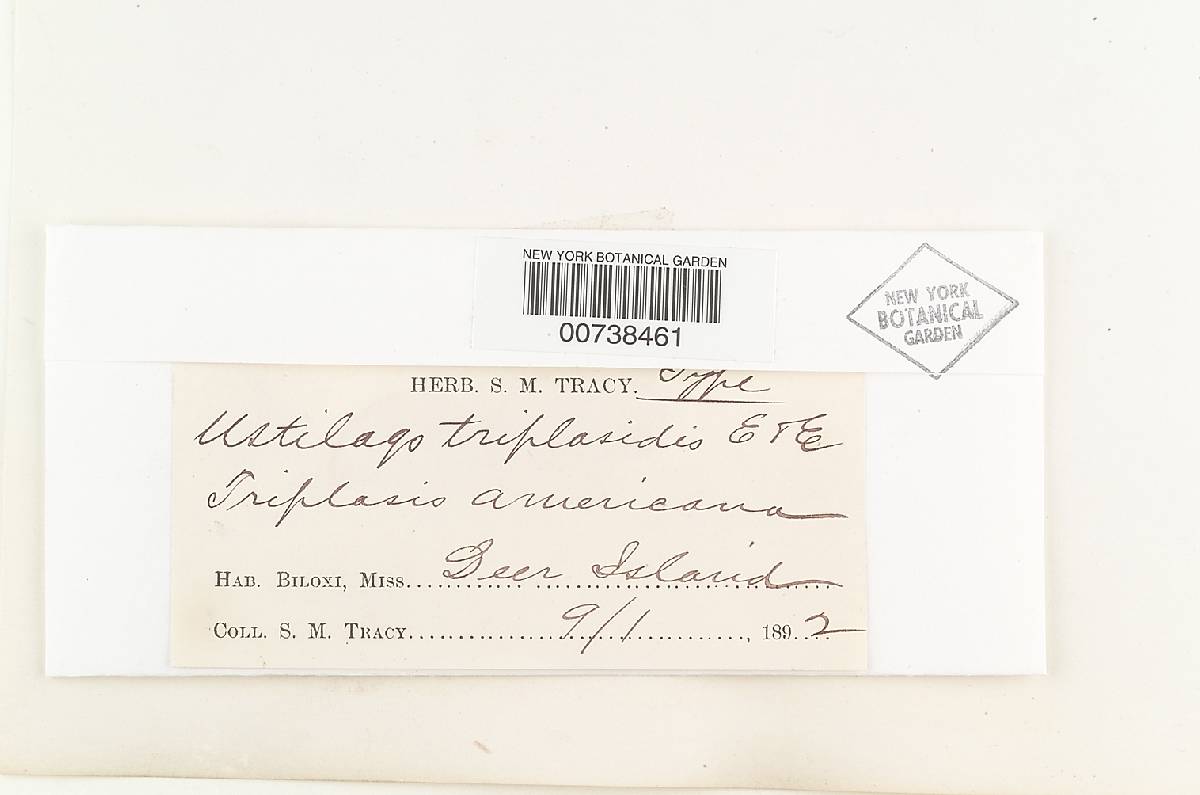 NEW YORK BOTANICAL GARDEN
00738461
NEW YORK
BOTANICAL
GARDEN
HERB. S. M. TRACY. Type
Ustilago triplasidis E & E
Triplasis americana
HAB. BILOXI, MISS. Deer Island
COLL. S. M. TRACY. 9/1, 1892